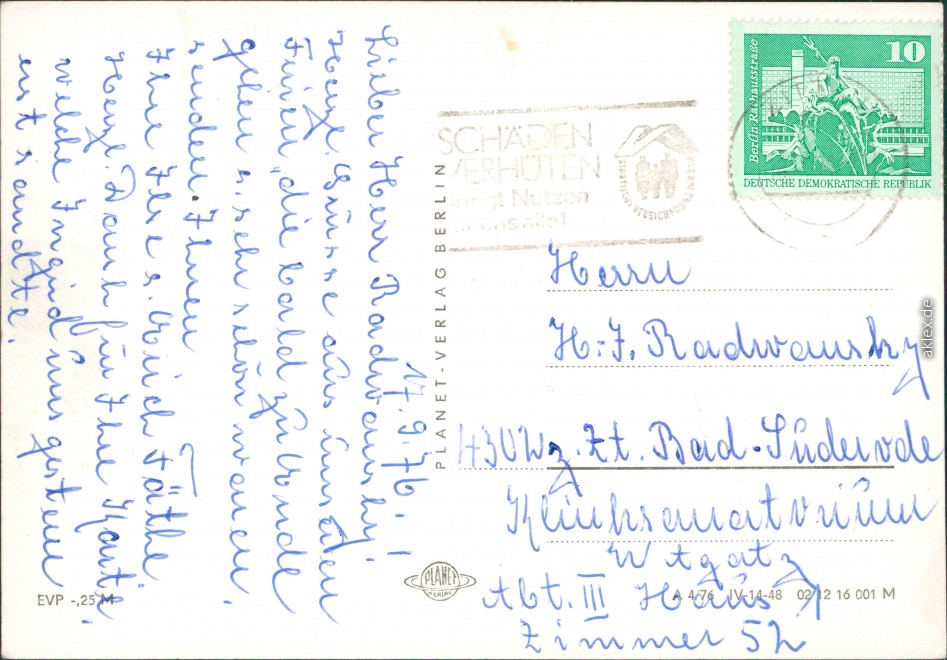 17.9.76.
Lieber Herr Radwansky!
Herzl. Grüsse aus unseren
Ferien, die bald zu Ende
gehen u. sehr schön waren.
senden Ihnen
Ihre Ilse u. Erich Fäthe
Herzl. Dank für Ihre Karte.
welche Ingrid uns gestern
erst sandte.
PLANET-VERLAG BERLIN
SCHÄDEN
VERHÜTEN
bringt Nutzen
uns alle!
STAATLICHE VERSICHERUNG
Berlin, Rathausstraße
10
DEUTSCHE DEMOKRATISCHE REPUBLIK
Herrn
H.-J. Radwansky
430 z. Zt. Bad-Suderode
Kliniksanatorium
Abt. III Haus
Zimmer 52
PLANET
VERLAG
EVP -,25 M
A 4/76 IV-14-48 02 12 16 001 M
akleix.de